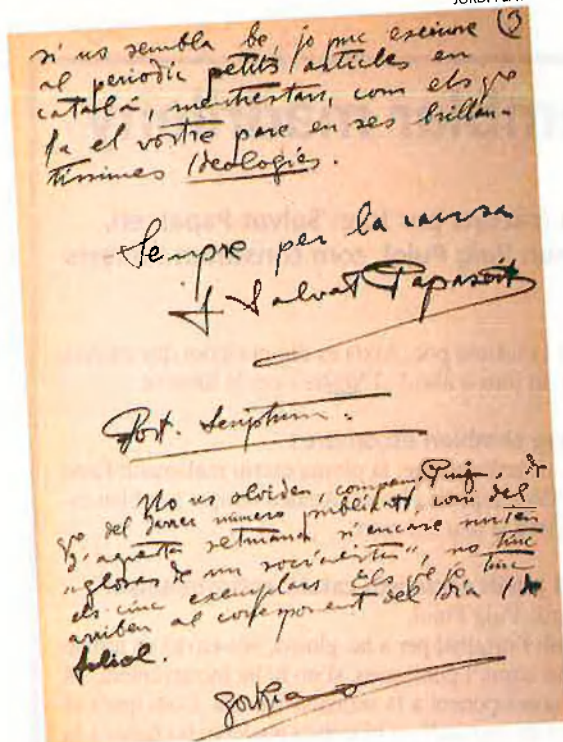 JORDI PLA
3
si us sembla be, jo puc escriure
al periodic petits articles en
català, mentrestant, com els que
fa el vostre pare en ses brillan-
tissimes Ideologies.
Sempre per la causa
J Salvat Papasseit
Post. Scriptum.
No us olvideu, company Puig, de
que del darrer número publicat com del
d'aquesta setmana si encare surten
"gloses de un socialista", no tinc
els cinc exemplars. Els que tinc
arriben al corresponent del Dia 1 de
Juliol.
Gorkiano